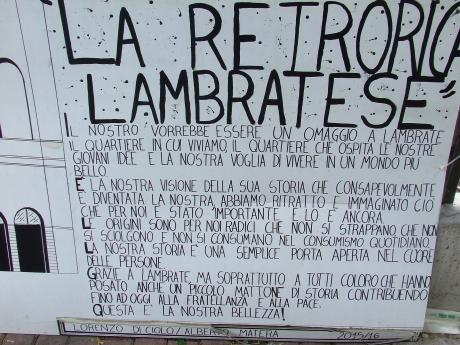 "LA RETRORICA
LAMBRATESE"
IL NOSTRO VORREBBE ESSERE UN OMAGGIO A LAMBRATE
IL QUARTIERE IN CUI VIVIAMO, IL QUARTIERE CHE OSPITA LE NOSTRE
GIOVANI IDEE E LA NOSTRA VOGLIA DI VIVERE IN UN MONDO PIU
BELLO.
E LA NOSTRA VISIONE DELLA SUA STORIA CHE CONSAPEVOLMENTE
E DIVENTATA LA NOSTRA, ABBIAMO RITRATTO E IMMAGINATO CIO
CHE PER NOI E STATO IMPORTANTE E LO E ANCORA.
LE ORIGINI SONO PER NOI RADICI CHE NON SI STRAPPANO CHE NON
SI SCIOLGONO E NON SI CONSUMANO NEL CONSUMISMO QUOTIDIANO.
LA NOSTRA STORIA E UNA SEMPLICE PORTA APERTA NEL CUORE
DELLE PERSONE.
GRAZIE A LAMBRATE, MA SOPRATTUTTO A TUTTI COLORO CHE HANNO
POSATO ANCHE UN PICCOLO MATTONE DI STORIA CONTRIBUENDO
FINO AD OGGI ALLA FRATELLANZA E ALLA PACE.
QUESTA E' LA NOSTRA BELLEZZA!
LORENZO DICIOLO/ALBERTO MATERA 2015/16